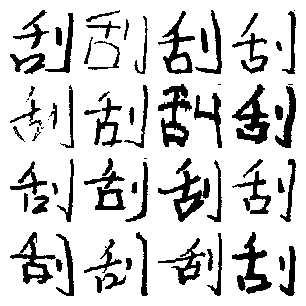 刮刮刮刮
刮刮刮刮
刮刮刮刮
刮刮刮刮